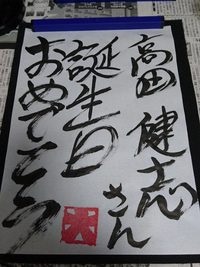 高田 健志さん
誕生日
おめでとう